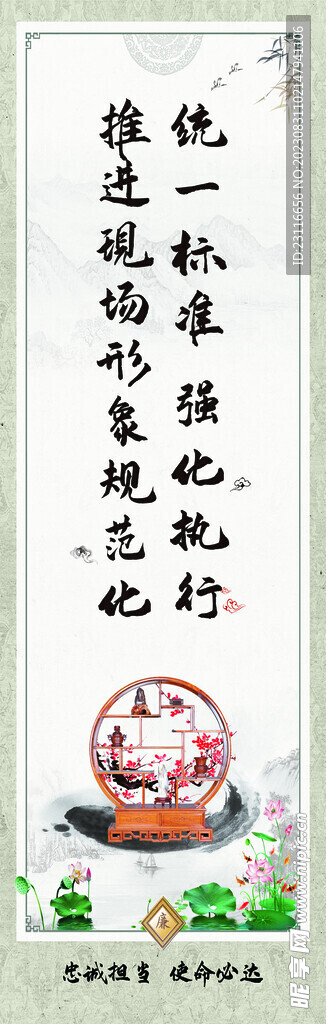 统一标准 强化执行
推进現场形象规范化
廉
忠诚担当 使命必达
ID:23116656 NO:20230831102147941106
昵享网 www.nipic.cn